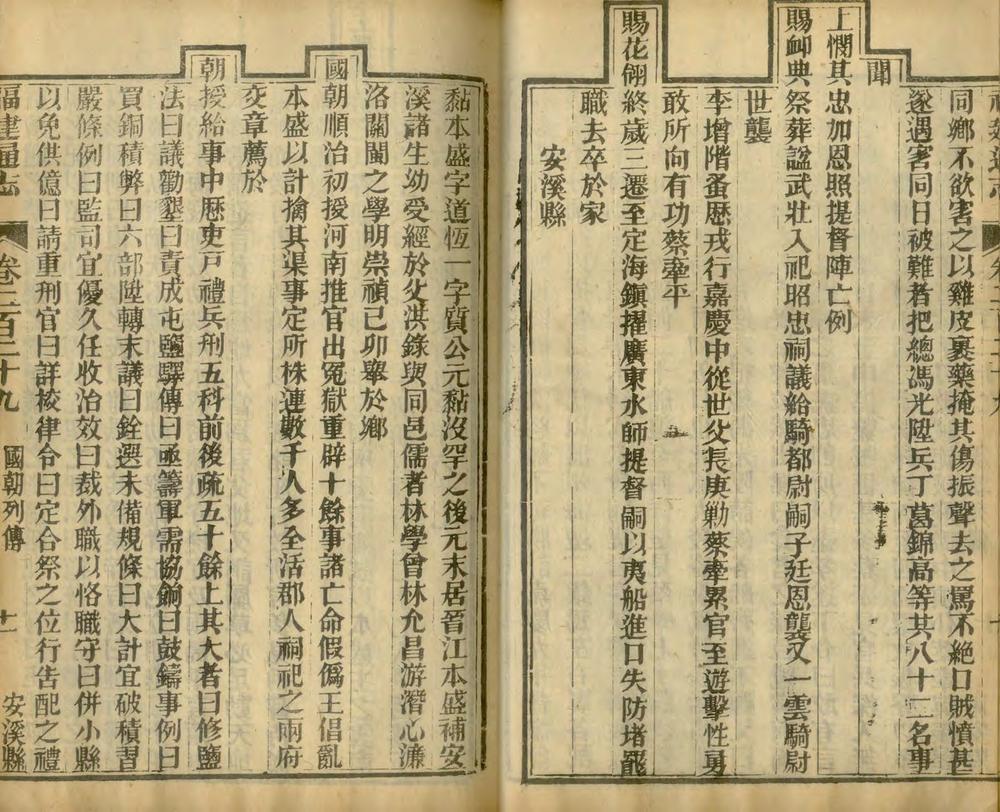 同鄉不欲害之以雞皮裹藥掩其傷振聲去之罵不絕口賊憤甚
遂遇害同日被難者把總馮光陞兵丁葛錦高等共八十二名事
聞
上憫其忠加恩照提督陣亡例
賜卹典祭葬諡武壯入祀昭忠祠議給騎都尉嗣子廷恩襲又一雲騎尉
世襲
李增階蚤歷戎行嘉慶中從世父長庚勦蔡牽累官至遊擊性勇
敢所向有功蔡牽平
賜花翎終歲三遷至定海鎮擢廣東水師提督嗣以夷船進口失防堵罷
職去卒於家
安溪縣
黏本盛字道恆一字質公元黏沒罕之後元末居晉江本盛補安
溪諸生幼受經於父洪錄與同邑儒者林學曾林允昌游潛心濂
洛關閩之學明崇禎己卯舉於鄉
國
朝順治初授河南推官出冤獄重辟十餘事諸亡命假僞王倡亂
本盛以計擒其渠事定所株連數千人多全活郡人祠祀之兩府
交章薦於
朝
授給事中歷吏戶禮兵刑五科前後疏五十餘上其大者曰修鹽
法曰議勸墾曰責成屯鹽驛傳曰亟籌軍需協餉曰鼓鑄事例曰
買銅積弊曰六部陞轉未議曰銓選未備規條曰大計宜破積習
嚴條例曰監司宜優久任收治效曰裁外職以恪職守曰併小縣
以免供億曰請重刑官曰詳校律令曰定合祭之位行告配之禮
福建通志 卷二百二十九 國朝列傳 十一 安溪縣